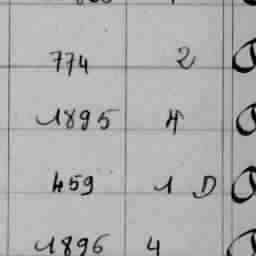 774 2
1895 4
459 1 D
1896 4